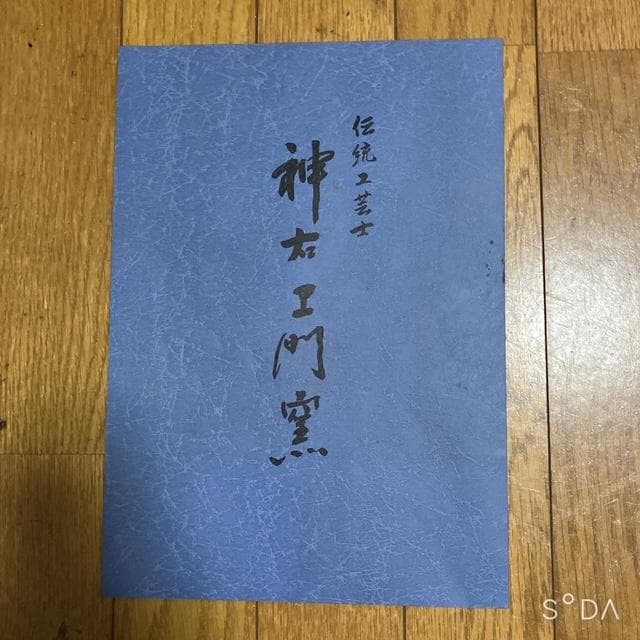 伝統工芸士
神右エ門窯
SODA